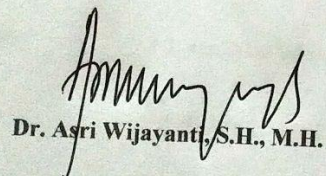 Dr. Asri Wijayanti, S.H., M.H.